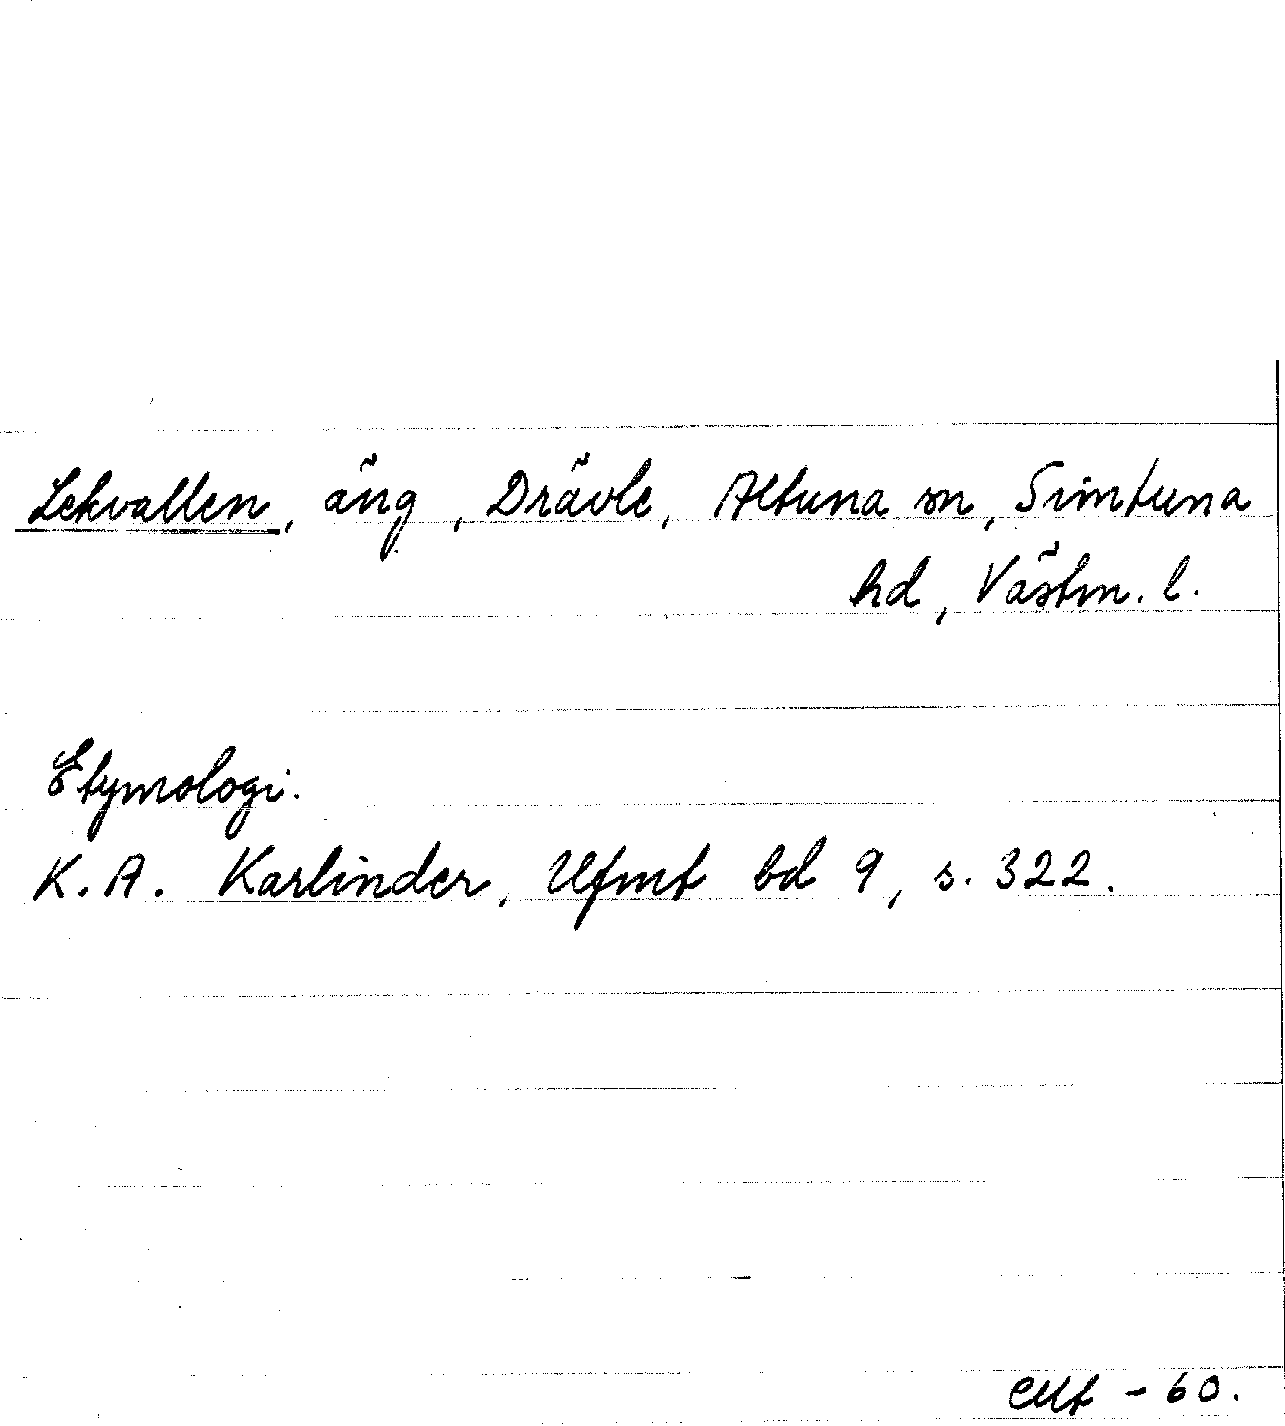 Lekvallen, äng, Drävle, Altuna sn, Simtuna
hd, Västm. l.
Etymologi.
K. A. Karlinder, Ufmt bd 9, s. 322.
-60.